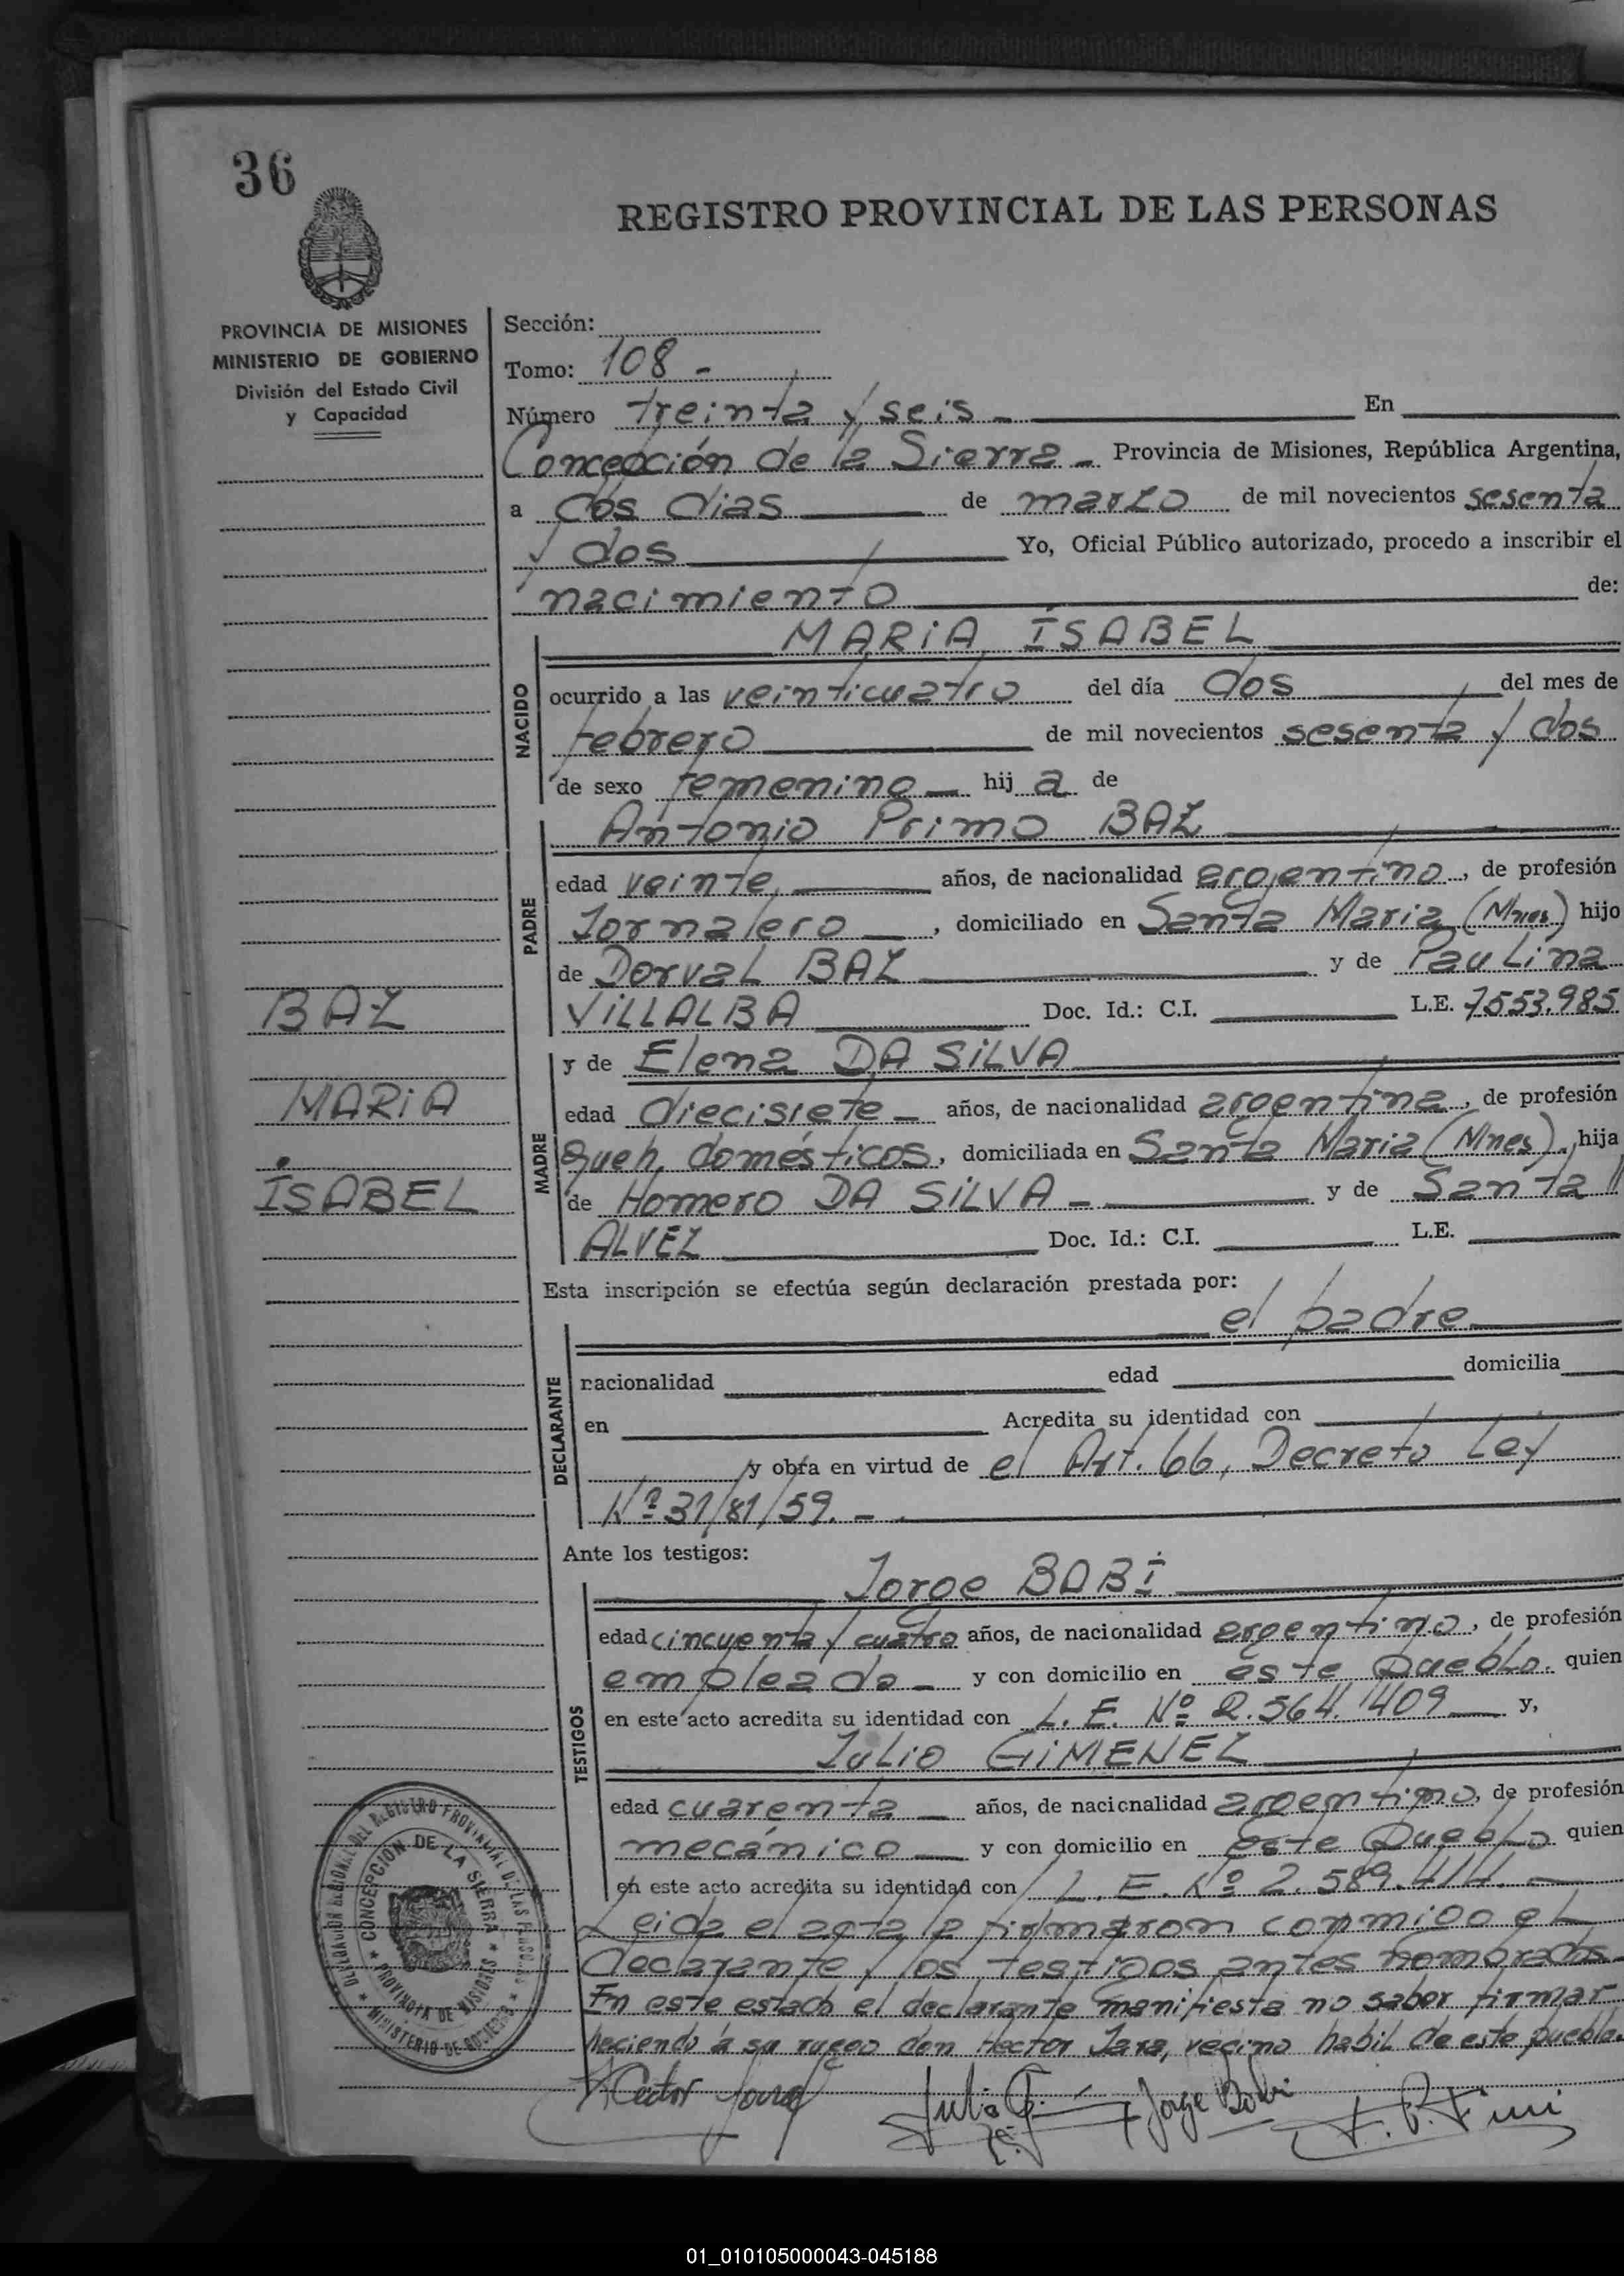 36
REGISTRO PROVINCIAL DE LAS PERSONAS
PROVINCIA DE MISIONES
MINISTERIO DE GOBIERNO
División del Estado Civil
y Capacidad
Sección:
Tomo: 108 -
Número treinta y seis - En
Concepción de la Sierra - Provincia de Misiones, República Argentina,
a dos dias de marzo de mil novecientos sesenta
y dos Yo, Oficial Público autorizado, procedo a inscribir el
nacimiento de:
MARIA ISABEL
NACIDO
ocurrido a las veinticuatro del día dos del mes de
febrero de mil novecientos sesenta y dos
de sexo femenino - hij a de
Antonio Primo BAZ
PADRE
edad veinte, años, de nacionalidad argentino, de profesión
Jornalero, domiciliado en Santa Maria (Mnes) hijo
de Dorval BAZ y de Paulina
VILLALBA Doc. Id.: C.I. L.E. 7553.985
BAZ
MARIA
ISABEL
y de Elena DA SILVA
MADRE
edad diecisiete - años, de nacionalidad argentina, de profesión
queh. domésticos, domiciliada en Santa Maria (Mnes), hija
de Homero DA SILVA - y de Santa
ALVEZ Doc. Id.: C.I. L.E.
Esta inscripción se efectúa según declaración prestada por:
el padre
DECLARANTE
nacionalidad edad domicilia
en Acredita su identidad con
y obra en virtud de el Art. 66, Decreto Ley
Nº 31/81/59. -
Ante los testigos:
Jorge BABI
TESTIGOS
edad cincuenta y cuatro años, de nacionalidad argentino, de profesión
empleado - y con domicilio en éste Pueblo. quien
en este acto acredita su identidad con L.E. Nº 2.564.409 y,
Julio GIMENEZ
edad cuarenta - años, de nacionalidad argentino, de profesión
mecánico y con domicilio en éste Pueblo quien
en este acto acredita su identidad con L.E. Nº 2.589.414. -
Leida el acta la firmaron conmigo el
declarante y los testigos antes nombrados
En este estado el declarante manifiesta no saber firmar
haciendo a su ruego don Hector Jara, vecino habil de este pueblo.
DELEGACION REGIONAL DEL REGISTRO PROVINCIAL DE LAS PERSONAS
CONCEPCION DE LA SIERRA
PROVINCIA DE MISIONES
MINISTERIO DE GOBIERNO
Hector Jara Julio G. Jorge Babi
01_010105000043-045188